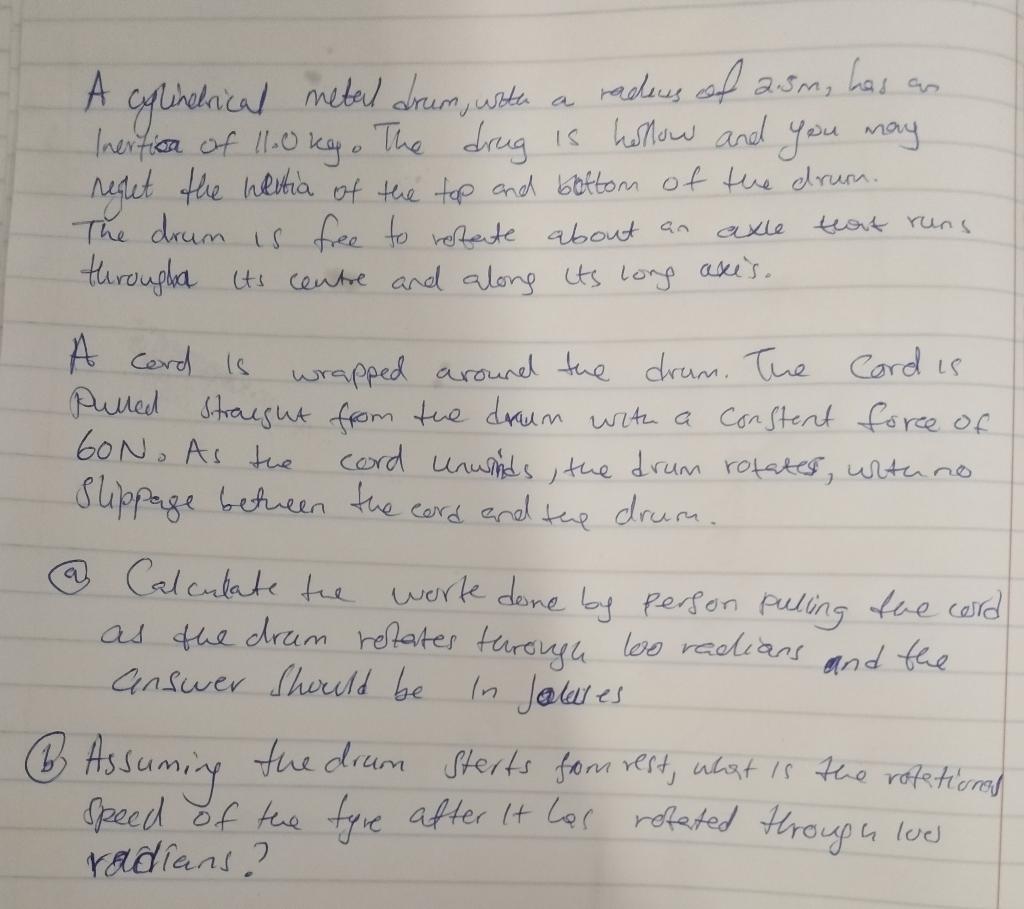 A cylindrical metal drum, with a radius of 2.5m, has an
Inertia of 11.0 kg. The drug is hollow and you may
neglet the inertia of the top and bottom of the drum.
The drum is free to rotate about an axle that runs
through its centre and along its long axis.
A cord is wrapped around the drum. The Cord is
Pulled straight from the drum with a constant force of
60N. As the cord unwinds, the drum rotates, with no
Slippage between the cord and the drum.
(a) Calculate the work done by person pulling the cord
as the drum rotates through 100 radians and the
answer should be In Joules
(b) Assuming the drum Starts from rest, what is the rotational
speed of the tyre after It has rotated through 100
radians?